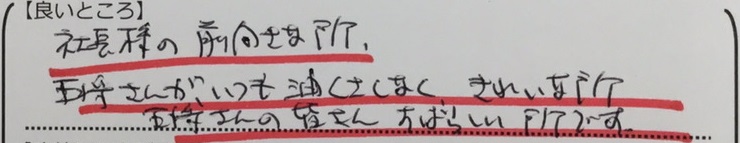 【良いところ】
社長様の前向きな所、
王将さんがいつも油くさくなく きれいな所
王将さんの皆さんすばらしい所です。